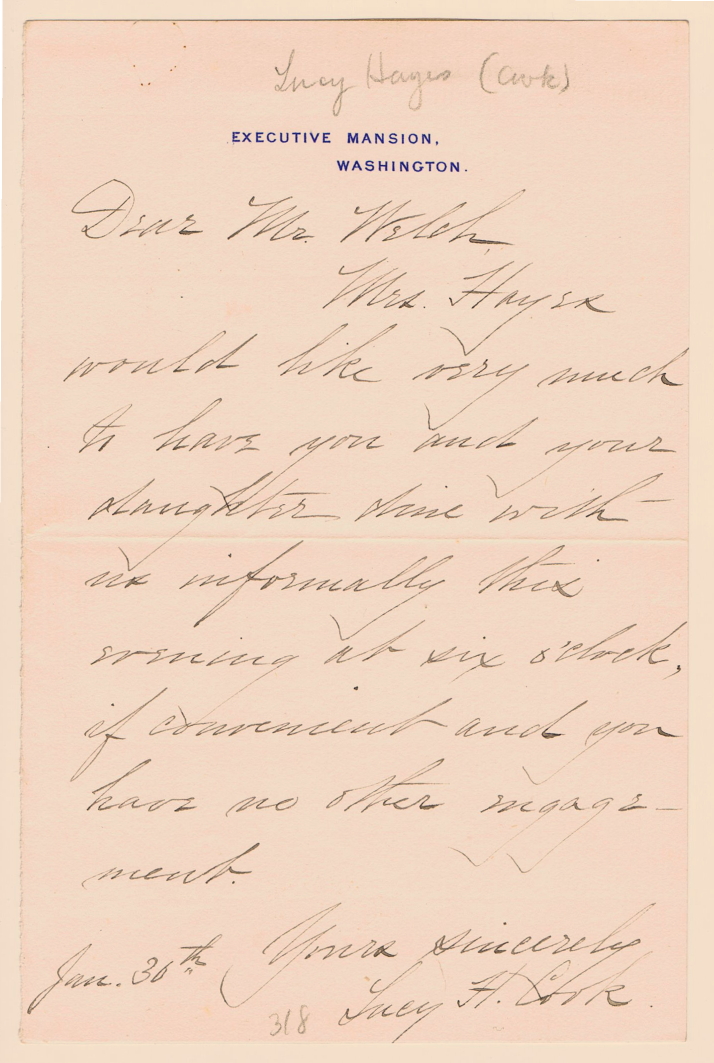 Lucy Hayes (Cook)
EXECUTIVE MANSION,
WASHINGTON.
Dear Mr. Welch,
Mrs. Hayes
would like very much
to have you and your
daughter dine with
us informally this
evening at six o'clock,
if convenient and you
have no other engage-
ment.
Yours sincerely
Jan. 30th
Lucy H. Cook.
318